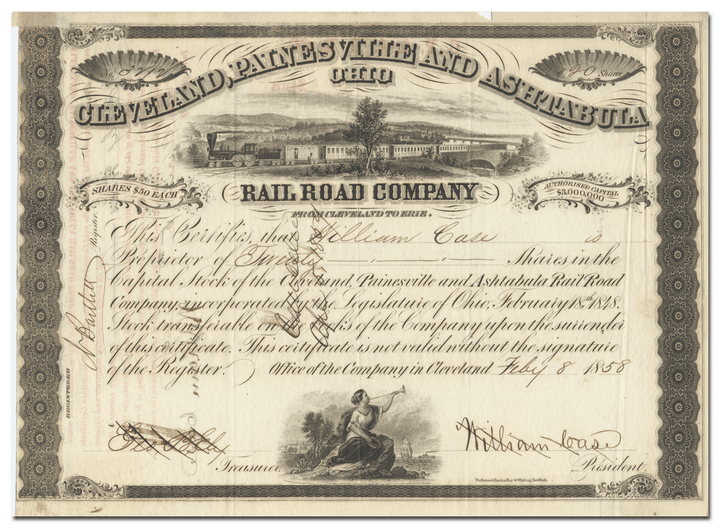 No.
20 Shares
CLEVELAND, PAINESVILLE AND ASHTABULA
OHIO
SHARES $50 EACH
RAIL ROAD COMPANY
AUTHORISED CAPITAL
$3,000,000
FROM CLEVELAND TO ERIE.
This Certifies, that William Case is
Proprietor of Twenty Shares in the
Capital Stock of the Cleveland, Painesville and Ashtabula Rail Road
Company, incorporated by the Legislature of Ohio, February 18th 1848.
Stock transferable on Books of the Company upon the surrender
of this certificate. This certificate is not valid without the signature
of the Register.
Office of the Company in Cleveland Feby 8 1858
REGISTERED
N Bartlett Register
Treasurer
William Case
President.